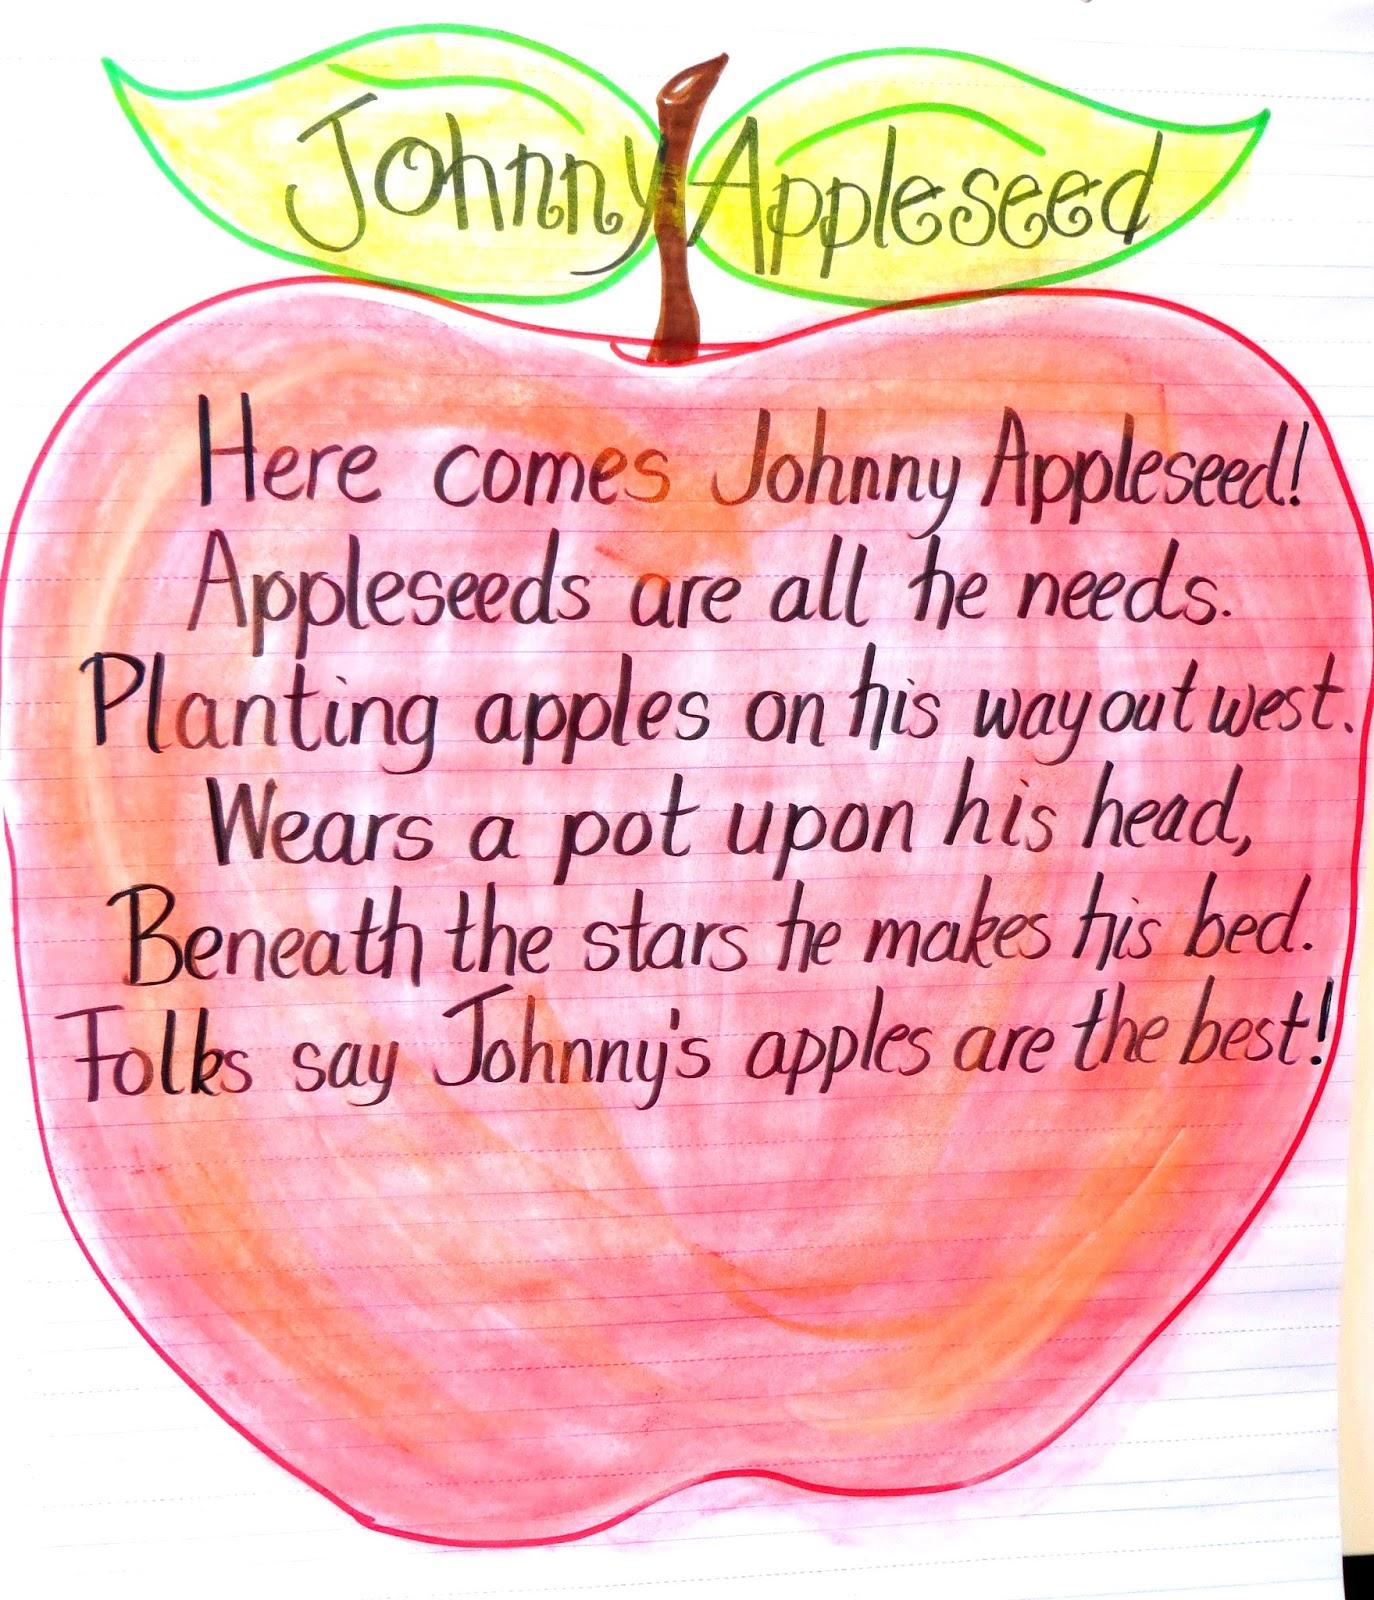 Johnny Appleseed
Here comes Johnny Appleseed!
Appleseeds are all he needs.
Planting apples on his way out west.
Wears a pot upon his head,
Beneath the stars he makes his bed.
Folks say Johnny's apples are the best!